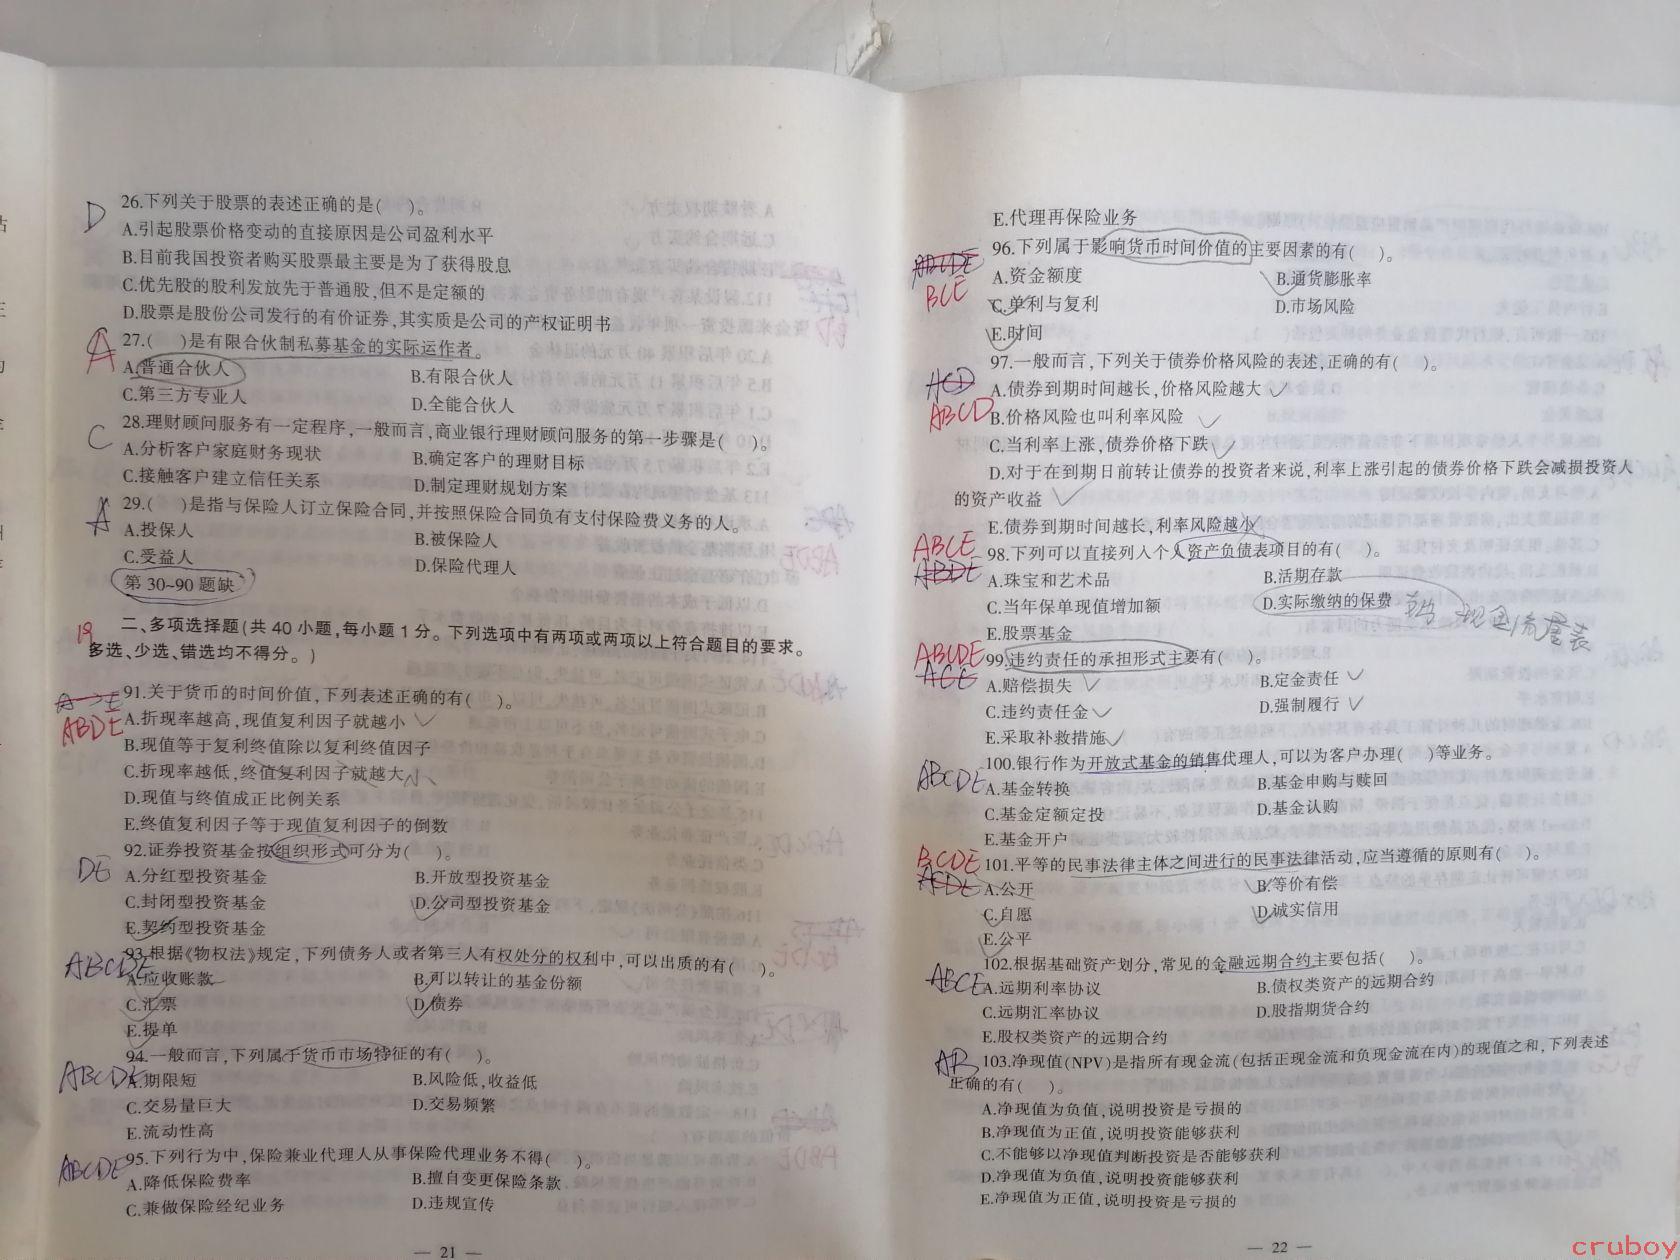 D 26.下列关于股票的表述正确的是(　　)。
A.引起股票价格变动的直接原因是公司盈利水平
B.目前我国投资者购买股票最主要是为了获得股息
C.优先股的股利发放先于普通股,但不是定额的
D.股票是股份公司发行的有价证券,其实质是公司的产权证明书
A 27.(　　)是有限合伙制私募基金的实际运作者。
A.普通合伙人 B.有限合伙人
C.第三方专业人 D.全能合伙人
C 28.理财顾问服务有一定程序,一般而言,商业银行理财顾问服务的第一步骤是(　　)。
A.分析客户家庭财务现状 B.确定客户的理财目标
C.接触客户建立信任关系 D.制定理财规划方案
A 29.(　　)是指与保险人订立保险合同,并按照保险合同负有支付保险费义务的人。
A.投保人 B.被保险人
C.受益人 D.保险代理人
第 30~90 题缺
19 二、多项选择题(共 40 小题,每小题 1 分。下列选项中有两项或两项以上符合题目的要求。
多选、少选、错选均不得分。)
91.关于货币的时间价值,下列表述正确的有(　　)。
ABDE A.折现率越高,现值复利因子就越小
B.现值等于复利终值除以复利终值因子
C.折现率越低,终值复利因子就越大 小
D.现值与终值成正比例关系
E.终值复利因子等于现值复利因子的倒数
92.证券投资基金按组织形式可分为(　　)。
DE A.分红型投资基金 B.开放型投资基金
C.封闭型投资基金 D.公司型投资基金
E.契约型投资基金
93.根据《物权法》规定,下列债务人或者第三人有权处分的权利中,可以出质的有(　　)。
ABCDE A.应收账款 B.可以转让的基金份额
C.汇票 D.债券
E.提单
94.一般而言,下列属于货币市场特征的有(　　)。
ABCDE A.期限短 B.风险低,收益低
C.交易量巨大 D.交易频繁
E.流动性高
ABCDE 95.下列行为中,保险兼业代理人从事保险代理业务不得(　　)。
A.降低保险费率 B.擅自变更保险条款
C.兼做保险经纪业务 D.违规宣传
— 21 —
E.代理再保险业务
96.下列属于影响货币时间价值的主要因素的有(　　)。
ABCDE
BCE A.资金额度 B.通货膨胀率
C.单利与复利 D.市场风险
E.时间
97.一般而言,下列关于债券价格风险的表述,正确的有(　　)。
ACD A.债券到期时间越长,价格风险越大
ABCD B.价格风险也叫利率风险
C.当利率上涨,债券价格下跌
D.对于在到期日前转让债券的投资者来说,利率上涨引起的债券价格下跌会减损投资人
的资产收益
E.债券到期时间越长,利率风险越小
ABCE 98.下列可以直接列入个人资产负债表项目的有(　　)。
ABDE A.珠宝和艺术品 B.活期存款
C.当年保单现值增加额 D.实际缴纳的保费 现金流量表
E.股票基金
ABCDE 99.违约责任的承担形式主要有(　　)。
ACE A.赔偿损失 B.定金责任
C.违约责任金 D.强制履行
E.采取补救措施
100.银行作为开放式基金的销售代理人,可以为客户办理(　　)等业务。
ABCDE A.基金转换 B.基金申购与赎回
C.基金定额定投 D.基金认购
E.基金开户
BCDE 101.平等的民事法律主体之间进行的民事法律活动,应当遵循的原则有(　　)。
ACDE A.公开 B.等价有偿
C.自愿 D.诚实信用
E.公平
102.根据基础资产划分,常见的金融远期合约主要包括(　　)。
ABCE A.远期利率协议 B.债权类资产的远期合约
C.远期汇率协议 D.股指期货合约
E.股权类资产的远期合约
AB 103.净现值(NPV)是指所有现金流(包括正现金流和负现金流在内)的现值之和,下列表述
正确的有(　　)。
A.净现值为负值,说明投资是亏损的
B.净现值为正值,说明投资能够获利
C.不能够以净现值判断投资是否能够获利
D.净现值为负值,说明投资能够获利
E.净现值为正值,说明投资是亏损的
— 22 —
cruboy